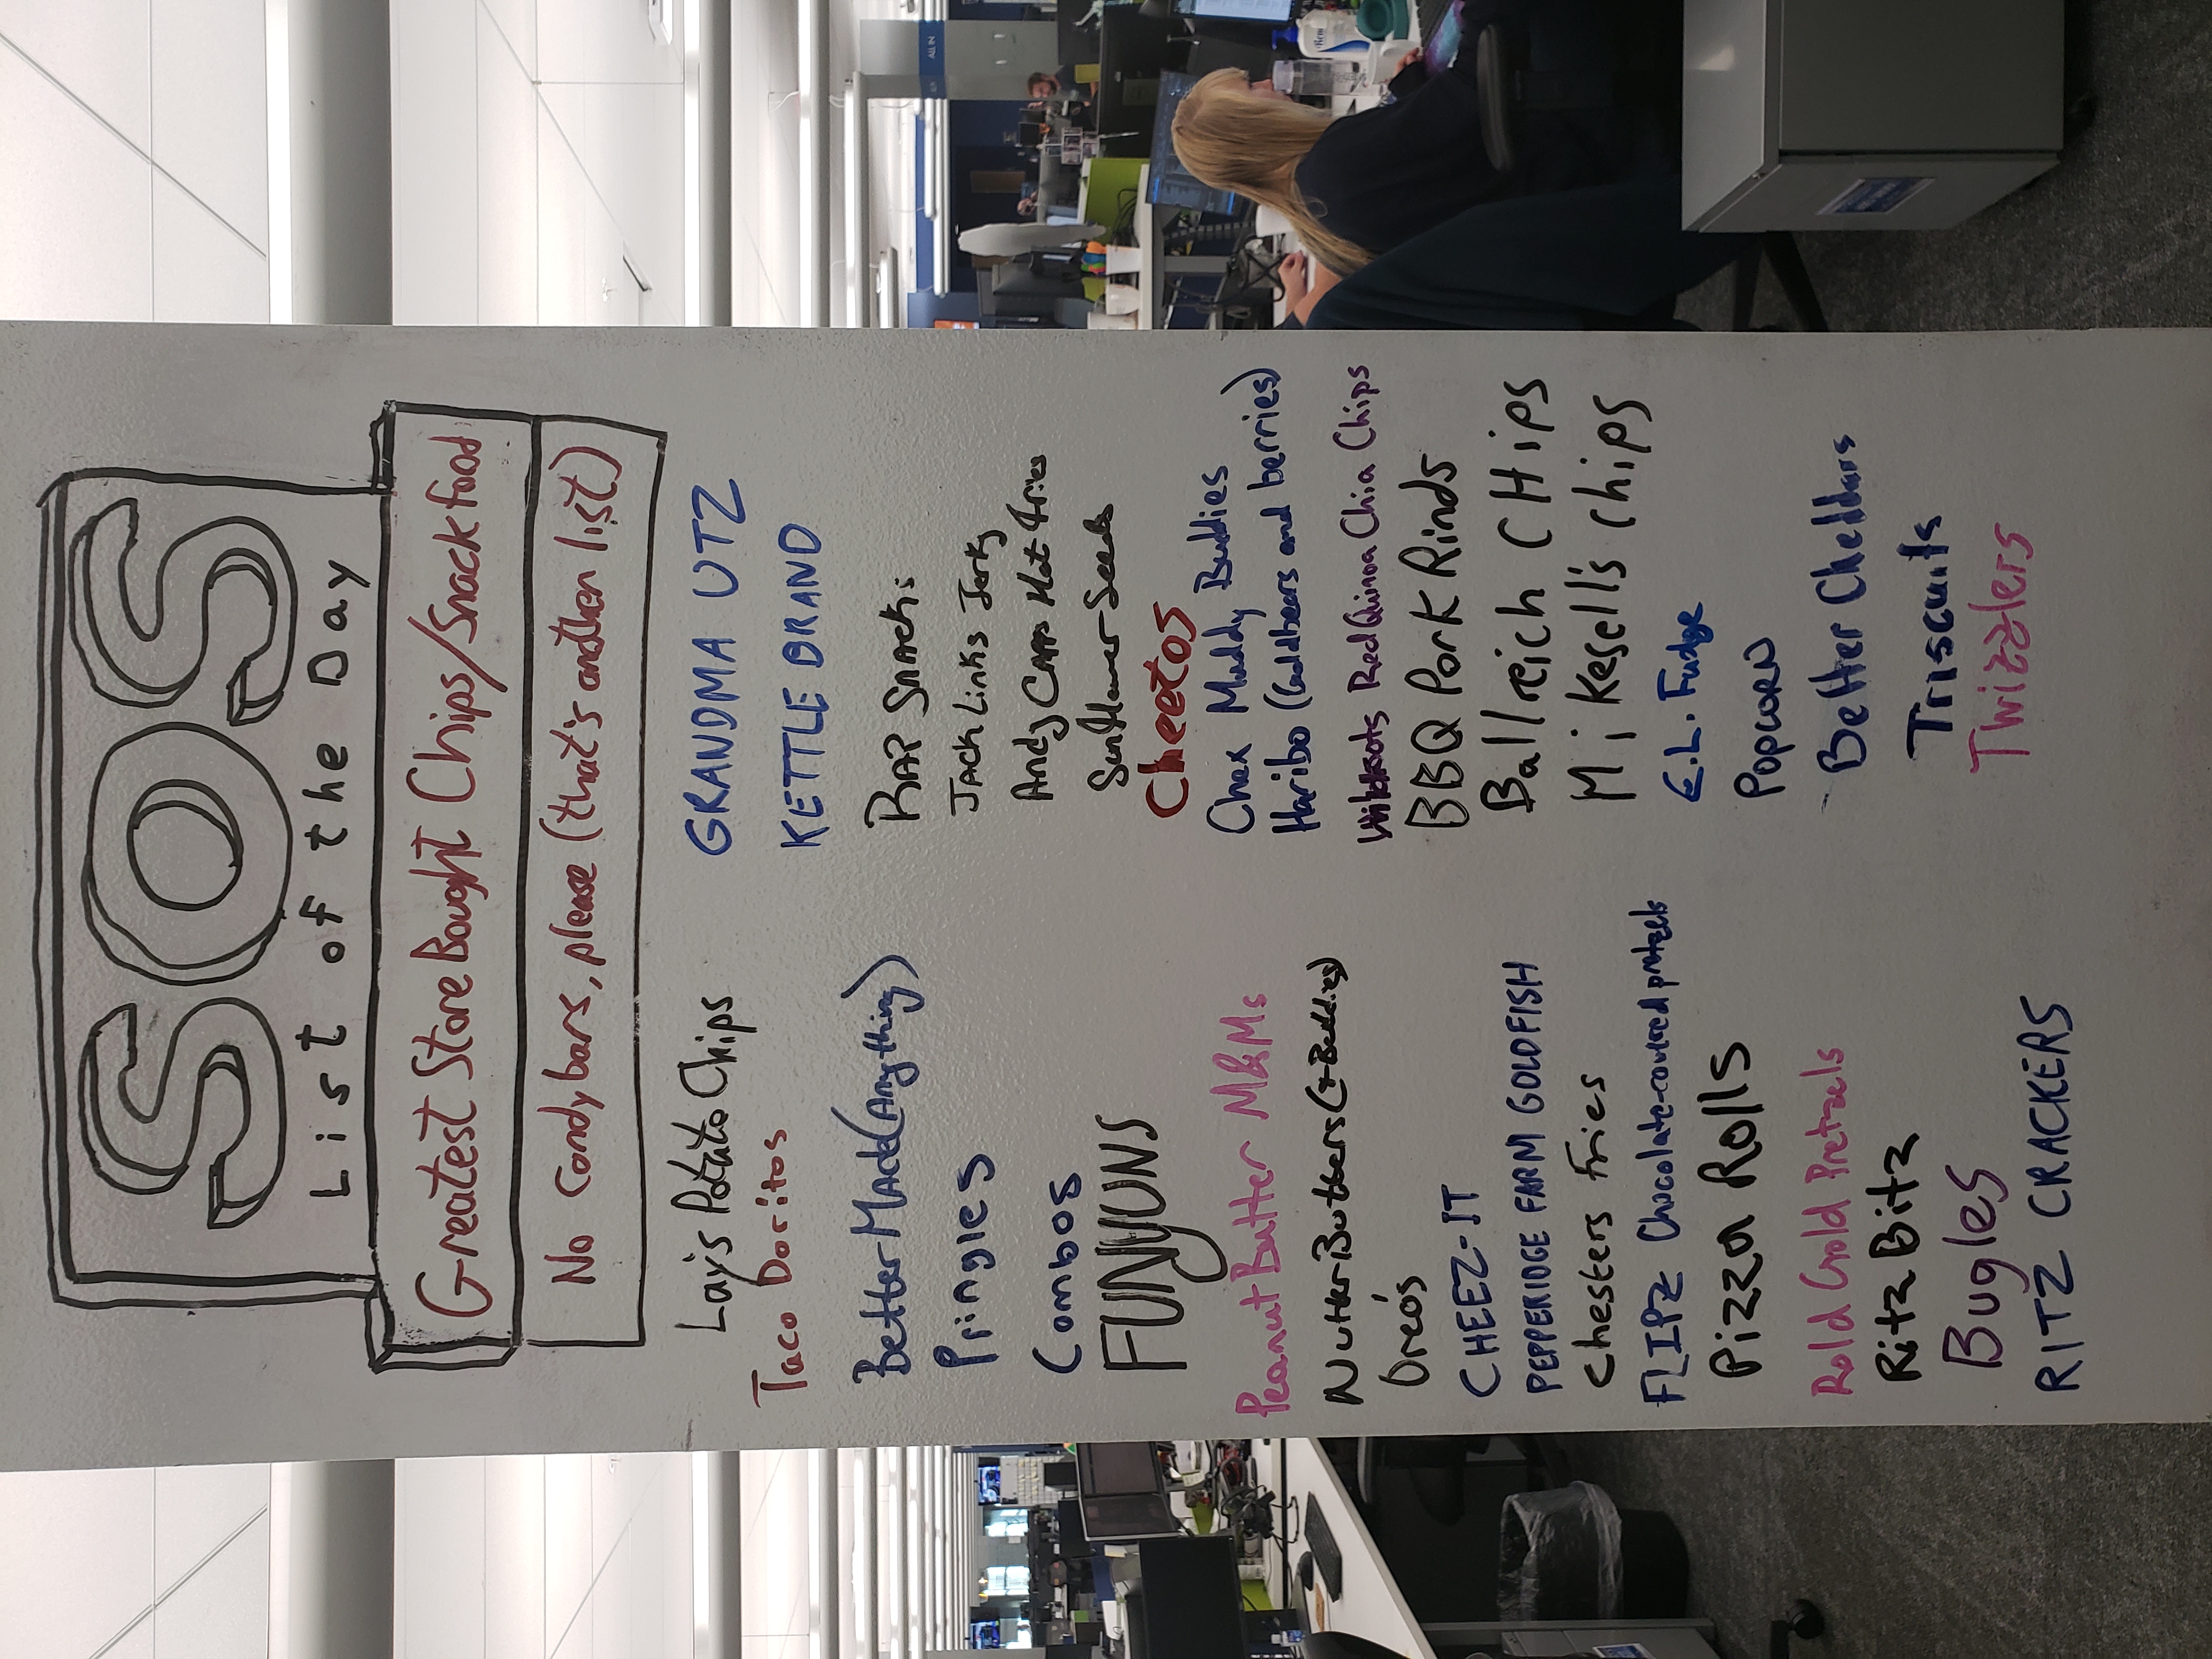 SOS
List of the Day
Greatest Store Bought Chips/Snack food
No Candy bars, please (that's another list)
Lay's Potato Chips
Taco Doritos
Better Made (Anything)
Pringles
Combos
FUNYUNS
Peanut Butter M&Ms
Nutter Butters (+Buddies)
Oreo's
CHEEZ-IT
PEPPERIDGE FARM GOLDFISH
Chesters Fries
FLIPZ Chocolate-covered pretzels
Pizza Rolls
Rold Gold Pretzels
Ritz Bitz
Bugles
RITZ CRACKERS
GRANDMA UTZ
KETTLE BRAND
RAP SNACKS
JACK Links Jerky
Andy CAPPS Hot fries
Sunflower Seeds
Cheetos
Chex Muddy Buddies
Haribo (Goldbears and berries)
Red Quinoa Chia Chips
BBQ Pork Rinds
Ballreich CHips
Mikesell's chips
E.L. Fudge
POPCORN
Better Cheddars
Triscuits
Twizzlers
ALL IN